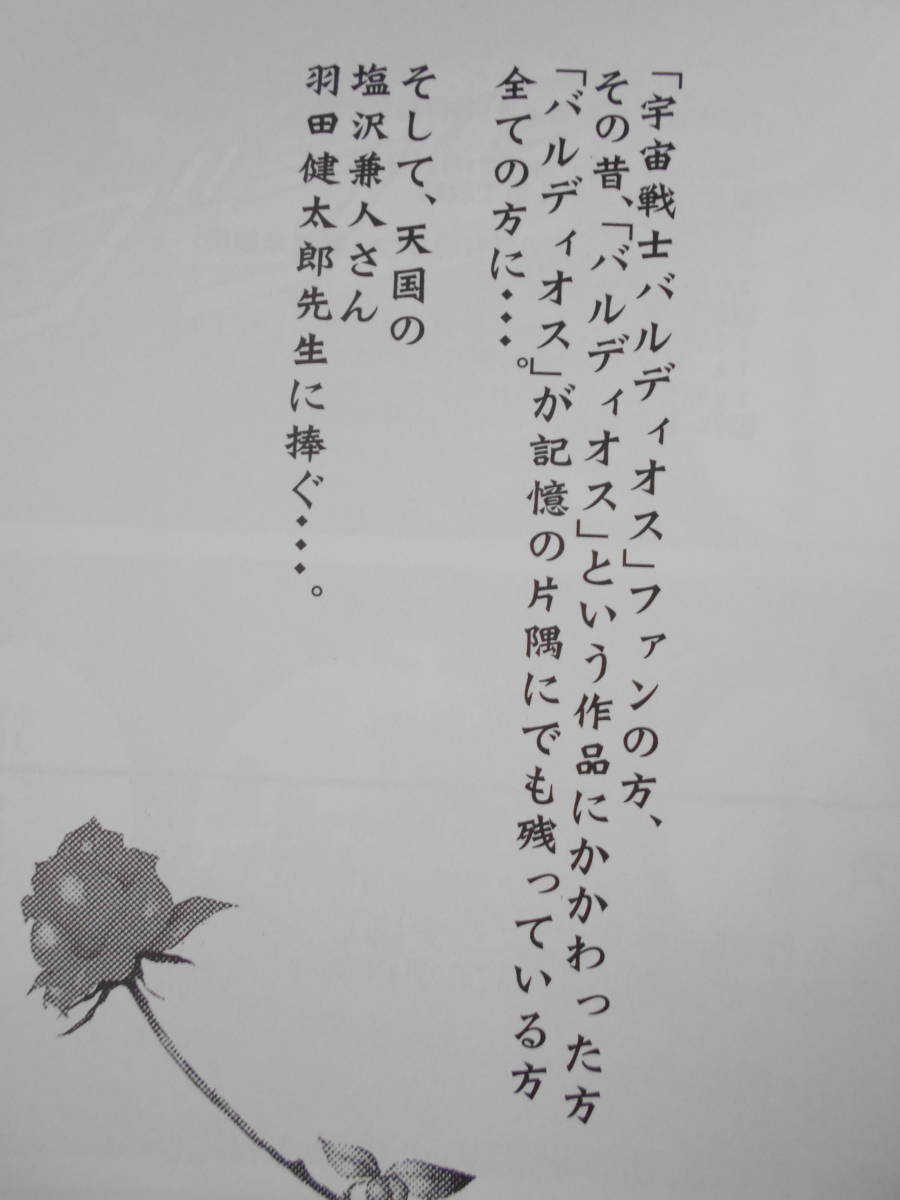 「宇宙戦士バルディオス」ファンの方、
その昔、「バルディオス」という作品にかかわった方
「バルディオス」が記憶の片隅にでも残っている方
全ての方に・・・。
そして、天国の
塩沢兼人さん
羽田健太郎先生に捧ぐ・・・。